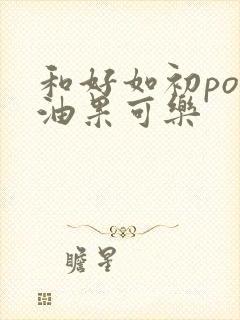 和好如初po
油果可樂
瞻星